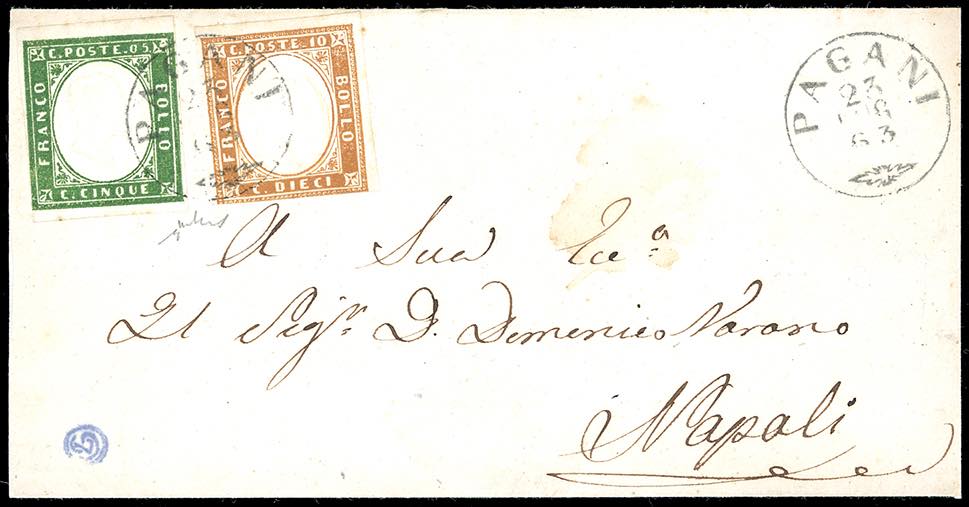 C. POSTE. 05
FRANCO
BOLLO
C. CINQUE
C. POSTE. 10
FRANCO
BOLLO
C. DIECI
PAGANI
23
PAGANI
23
63
A Sua Ecc.ª
Il Sigr. D. Domenico Varano
Napoli